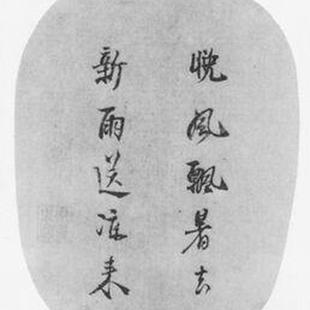 晚風飄暑去
新雨送凉來